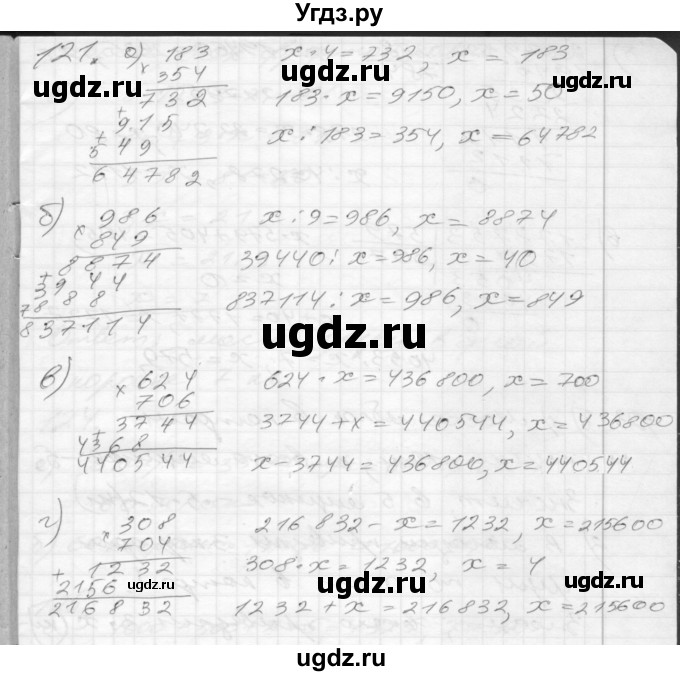 Угдз.ру
121. а) 183 x·4=732, x = 183
× 354
732 183·x=9150, x=50
+ 915
549 x:183=354, x=64782
64782
б) 986 x:9=986, x=8874
× 849
8874 39440:x=986, x=40
+ 3944
7888 837114:x=986, x=849
837114
в) 624 624·x=436800, x=700
× 706
3744 3744+x=440544, x=436800
+ 4368
440544 x-3744=436800, x=440544
г) 308 216832-x=1232, x=215600
× 704
+ 1232 308·x=1232, x=4
2156
216832 1232+x=216832, x=215600
ugdz.ru
ugdz.ru
ugdz.ru
ugdz.ru
ugdz.ru
ugdz.ru
ugdz.ru
ugdz.ru
ugdz.ru
ugdz.ru
ugdz.ru
ugdz.ru
ugdz.ru